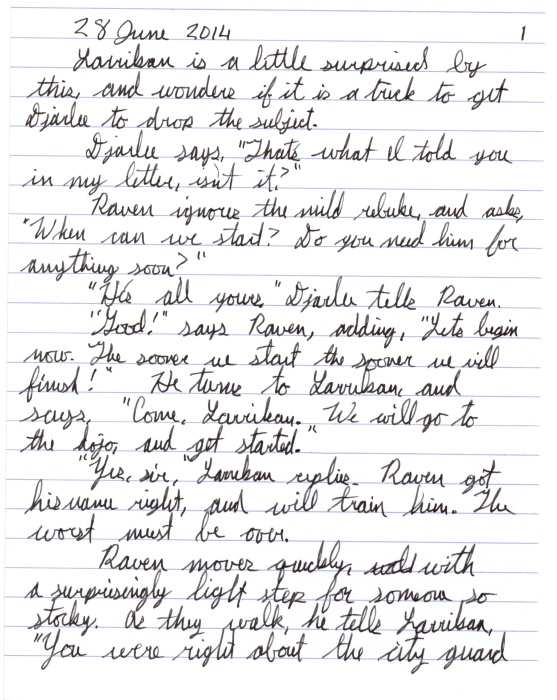 28 June 2014 1
Larriban is a little surprised by
this, and wonders if it is a trick to get
Djarlee to drop the subject.
Djarlee says, "Thats what I told you
in my letter, isn't it?"
Raven ignores the mild rebuke, and asks,
"When can we start? Do you need him for
anything soon?"
"He's all yours" Djarlee tells Raven.
"Good!" says Raven, adding, "Lets begin
now. The sooner we start the sooner we will
finish!" He turns to Larriban, and
says, "Come, Larriban. We will go to
the dojo, and get started."
"Yes, sir," Larriban replies. Raven got
his name right, and will train him. The
worst must be over.
Raven moves quickly, with
a surprisingly light step for someone so
stocky. As they walk, he tells Larriban,
"You were right about the city guard